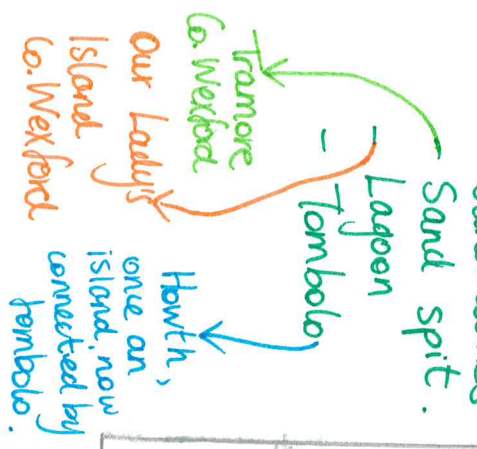 Sand spit.
- Lagoon
- Tombolo
Tramore
Co. Wexford
Our Lady's
Island
Co. Wexford
Howth,
once an
island, now
connected by
tombolo.